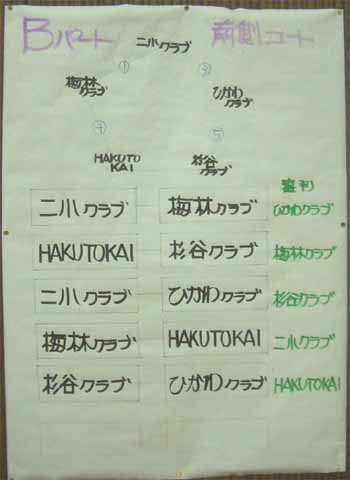 Bパート 前側コート
二小クラブ
① ③
梅林クラブ ひかわクラブ
④ ⑤
HAKUTOKAI 杉谷クラブ
審判
二小クラブ 梅林クラブ ひかわクラブ
HAKUTOKAI 杉谷クラブ 梅林クラブ
二小クラブ ひかわクラブ 杉谷クラブ
梅林クラブ HAKUTOKAI 二小クラブ
杉谷クラブ ひかわクラブ HAKUTOKAI